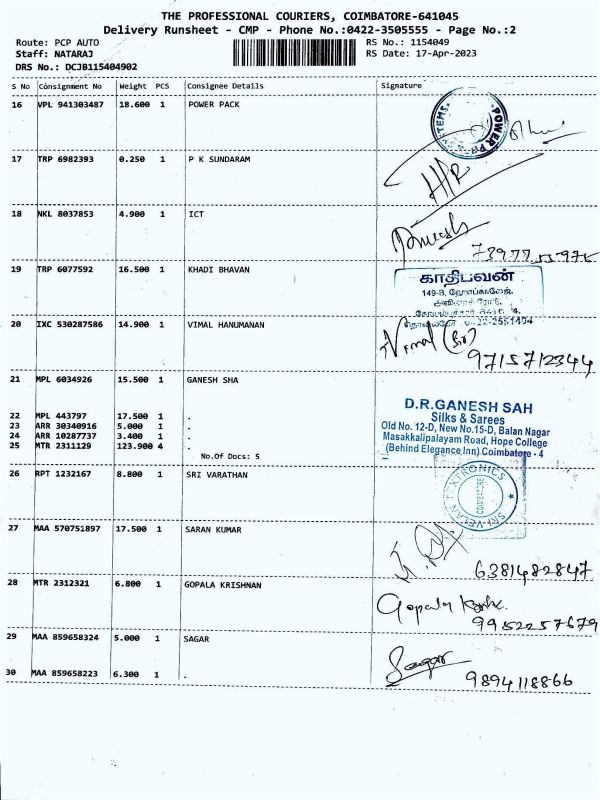 THE PROFESSIONAL COURIERS, COIMBATORE-641045
Delivery Runsheet - CMP - Phone No.:0422-3505555 - Page No.:2
Route: PCP AUTO RS No.: 1154049
Staff: NATARAJ RS Date: 17-Apr-2023
DRS No.: DCJB115404902
S No Consignment No Weight PCS Consignee Details Signature
16 VPL 941303487 18.600 1 POWER PACK
POWER SYSTEMS
17 TRP 6982393 0.250 1 P K SUNDARAM
18 NKL 8037853 4.900 1 ICT
19 TRP 6077592 16.500 1 KHADI BHAVAN
காதிபவன்
149-B,
20 IXC 530287586 14.900 1 VIMAL HANUMANAN
Vimal
9715712344
21 MPL 6034926 15.500 1 GANESH SHA
D.R.GANESH SAH
Silks & Sarees
Old No. 12-D, New No.15-D, Balan Nagar
Masakkalipalayam Road, Hope College
(Behind Elegance Inn) Coimbatore - 4
22 MPL 443797 17.500 1 .
23 ARR 30340916 5.000 1 .
24 ARR 10287737 3.400 1 .
25 MTR 2311129 123.900 4 .
No.Of Docs: 5
26 RPT 1232167 8.800 1 SRI VARATHAN
COIMBATORE
27 MAA 570751897 17.500 1 SARAN KUMAR
6381482847
28 MTR 2312321 6.800 1 GOPALA KRISHNAN
Gopala
9952257679
29 MAA 859658324 5.000 1 SAGAR
Sagar
9894118866
30 MAA 859658223 6.300 1 .